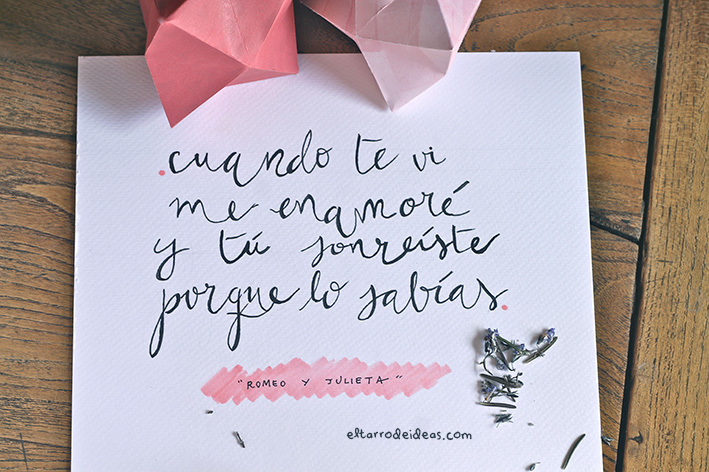 .cuando te vi
me enamoré
y tú sonreíste
porque lo sabías.
"ROMEO Y JULIETA"
eltarrodeideas.com